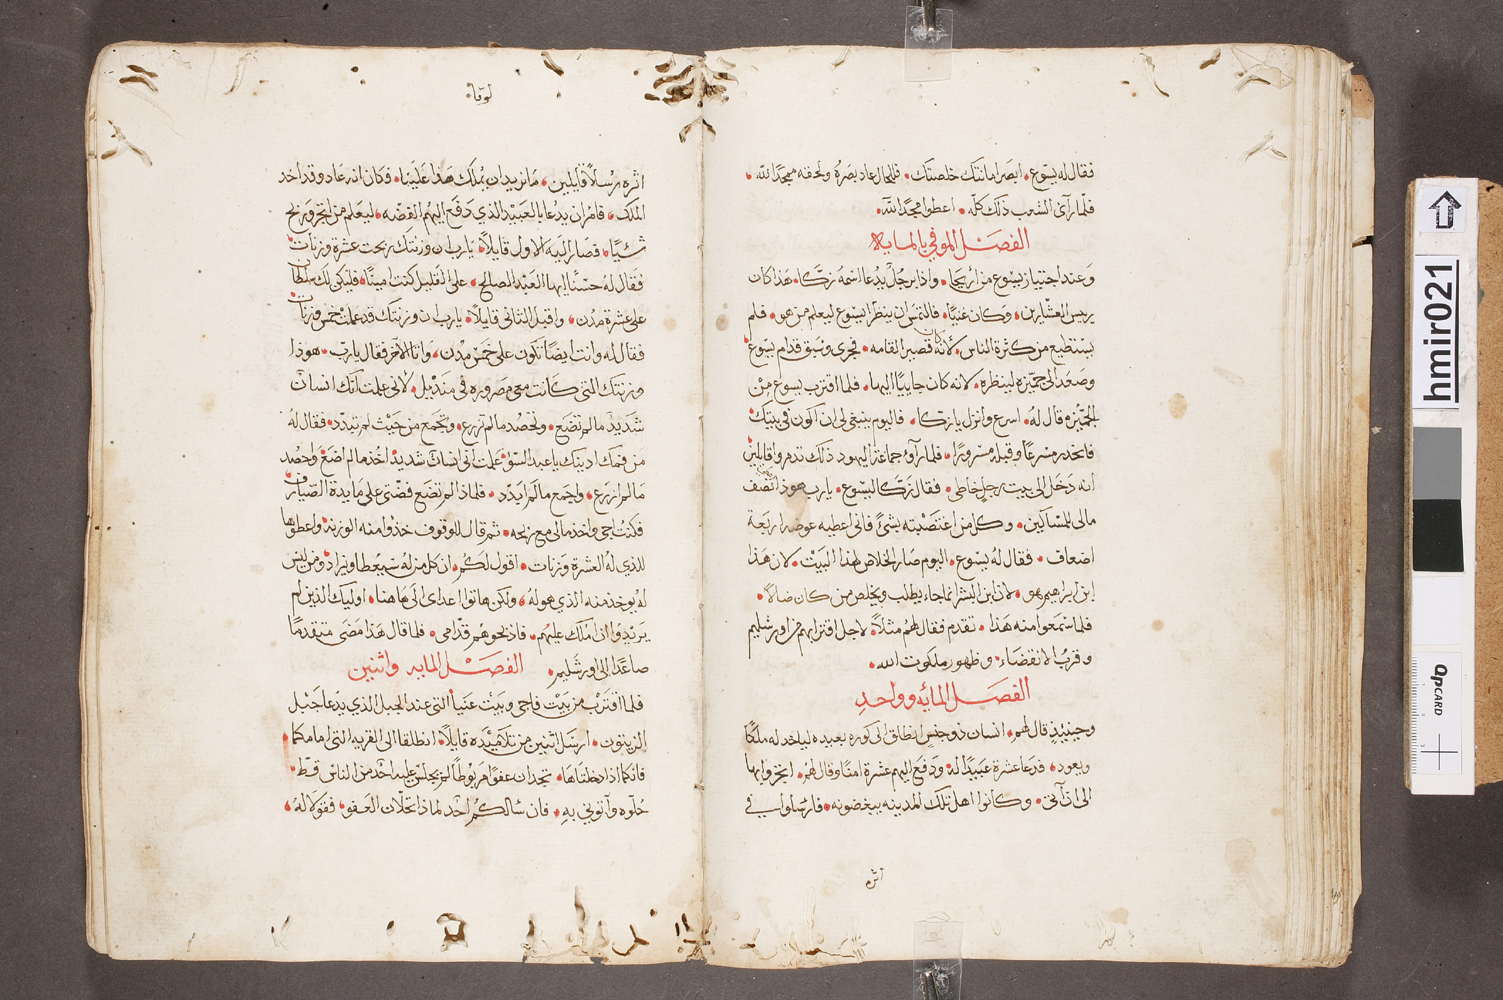 فقال له يسوع. ابصر امانتك خلصتك. فللحال عاد بصره ولحقه ممجدًا الله.
فلما رآى الشعب ذلك كله. اعطوا مجدًا لله.
الفصل الموفي بالمايه
وعند اجتياز يسوع من اريحا. واذا برجل يدعا اسمه زكّا. هذا كان
رييس العشارين. وكان غنيًا. فالتمس ان ينظر ايسوع ليعلم من هو. فلم
يستطيع من كثرة الناس. لانه كان قصير القامه. فجرى وسبق قدام يسوع
وصعد الى جميزه لينظره. لانه كان جاييًا اليها. فلما اقترب يسوع من
الجميزه قال له. اسرع وانزل يا زكا. فاليوم ينبغي لي ان اكون في بيتك
فانحدر مسرعًا وقبله مسرورًا. فلما رآوه جماعة اليهود ذلك تذمروا قايلين
انه دخل الى بيت رجل خاطي. فقال زكا ليسوع. يارب هوذا نصف
مالي للمساكين. وكل من اغتصبته بشئ فاني اعطيه عوضه اربعة
اضعاف. فقال له يسوع. اليوم صار الخلاص لهذا البيت. لان هذا
ابن ابراهيم هو. لان ابن البشر انما جاء يطلب ويخلص من كان ضالاً.
فلما سمعوا منه هذا. تقدم فقال لهم مثلاً. لاجل اقترابهم من اورشليم
وقرب الانقضاء. وظهور ملكوت الله.
الفصل المايه وواحد
وحينيذ قال لهم. انسان ذو جنس انطلق الى كوره بعيده لياخد له ملكًا
ويعود. فدعا عشرة عبيدًا له ودفع اليهم عشرة امنًا وقال لهم. اتجروا بها
الى ان آتى. وكانوا اهل تلك المدينه يبغضونه. فارسلوا في
آثره
لوقا
اثره رسلاً قايلين. ما نريد ان يملك هذا علينا. فكان انه عاد وقد اخد
الملك. فامر ان يدعا بالعبيد الذي دفع اليهم الفضه. ليعلم من اتجر وربح
شئيًا. فصار اليه الاول قايلاً. يارب ان وزنتك ربحت عشرة وزنات
فقال له حسنًا ايها العبد الصالح. على القليل كنت امينًا. فليكن لك سلطان
على عشرة مدن. واقبل الثانى قايلاً. يارب ان وزنتك قد عملت خمس وزنات
فقال له وانت ايضًا تكون على خمس مدن. واتا الآخر فقال يارب. هوذا
وزنتك التي كانت معي مصروره في منديل. لانى علمت آنك انسان
شديد ما لم تضع. وتحصد ما لم تزرع. وتجمع من حيث لم تبدد. فقال له
من فمك ادينك ياعبد السوّ علمت انى انسان شديد اخذ ما لم اضع واحصد
ما لم ازرع. واجمع ما لم ابدد. فلماذا لم تضع فضتى على مايدة الصيارف
فكنت اجى واخذ مالى مع ربحه. ثم قال للوقوف خذوا منه الوزنه واعطوها
للذي له العشرة وزنات. اقول لكم ان كل من له سيعطا ويزاد. ومن ليس
له يوخذ منه الذي هو له. ولكن هاتوا اعداى الى هاهنا. اوليك الذين لم
يريدوا ان املك عليهم. فاذبحوهم قدامى. فلما قال هذا مضى متقدمًا
صاعدًا الى اورشليم. الفصل المايه واثنين
فلما اقترب من بيت فاجى وبيت عنيا التى عند الجبل الذي يدعا جبل
الزيتون. ارسل اثنين من تلاميذه قايلاً. انطلقا الى القريه التى امامكما
فانكما اذا دخلتاها. تجدان عفوًا مربوطًا لم يجلس عليه احد من الناس قط.
حلوه وآتونى به. فان سالكم احد لماذا تحلان العفو. فقولا له.
hmir021
QP CARD